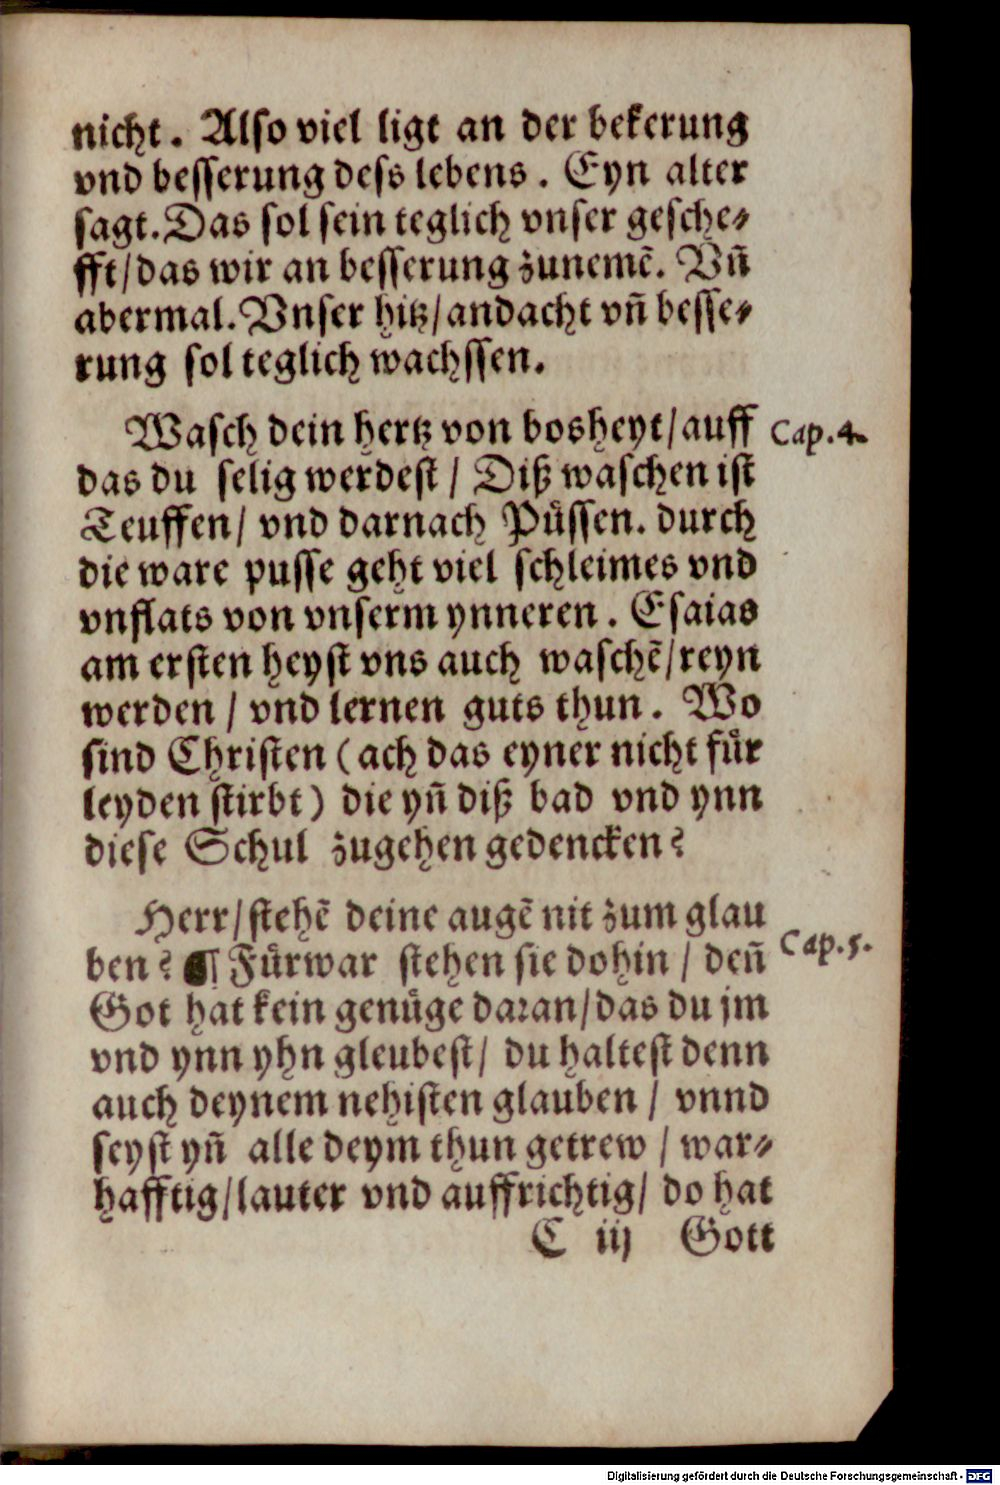 nicht. Also viel ligt an der bekerung
vnd besserung dess lebens. Eyn alter
sagt. Das sol sein teglich vnser gesche⸗
fft/das wir an besserung zunemẽ. Vñ
abermal. Vnser hitz/andacht vñ besse⸗
rung sol teglich wachssen.
Wasch dein hertz von bosheyt/auff Cap.4.
das du selig werdest/ Diß waschen ist
Teuffen/ vnd darnach Püssen. durch
die ware pusse geht viel schleimes vnd
vnflats von vnserm ynneren. Esaias
am ersten heyst vns auch waschẽ/reyn
werden/ vnd lernen guts thun. Wo
sind Christen (ach das eyner nicht für
leyden stirbt) die yñ diß bad vnd ynn
diese Schul zugehen gedencken?
Herr/stehẽ deine augẽ nit zum glau
ben? ¶ Fürwar stehen sie dohin/ deñ Cap.5.
Got hat kein genüge daran/das du jm
vnd ynn yhn gleubest/ du haltest denn
auch deynem nehisten glauben/ vnnd
seyst yñ alle deym thun getrew/ war⸗
hafftig/lauter vnd auffrichtig/ do hat
C iij Gott
Digitalisierung gefördert durch die Deutsche Forschungsgemeinschaft - DFG